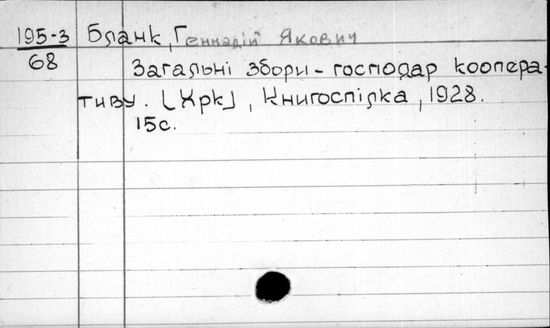 195-3 Бланк, Геннадій Якович
68
Загальні збори - господар коопера-
тиву. [Хрк], Книгоспілка, 1928.
15с.